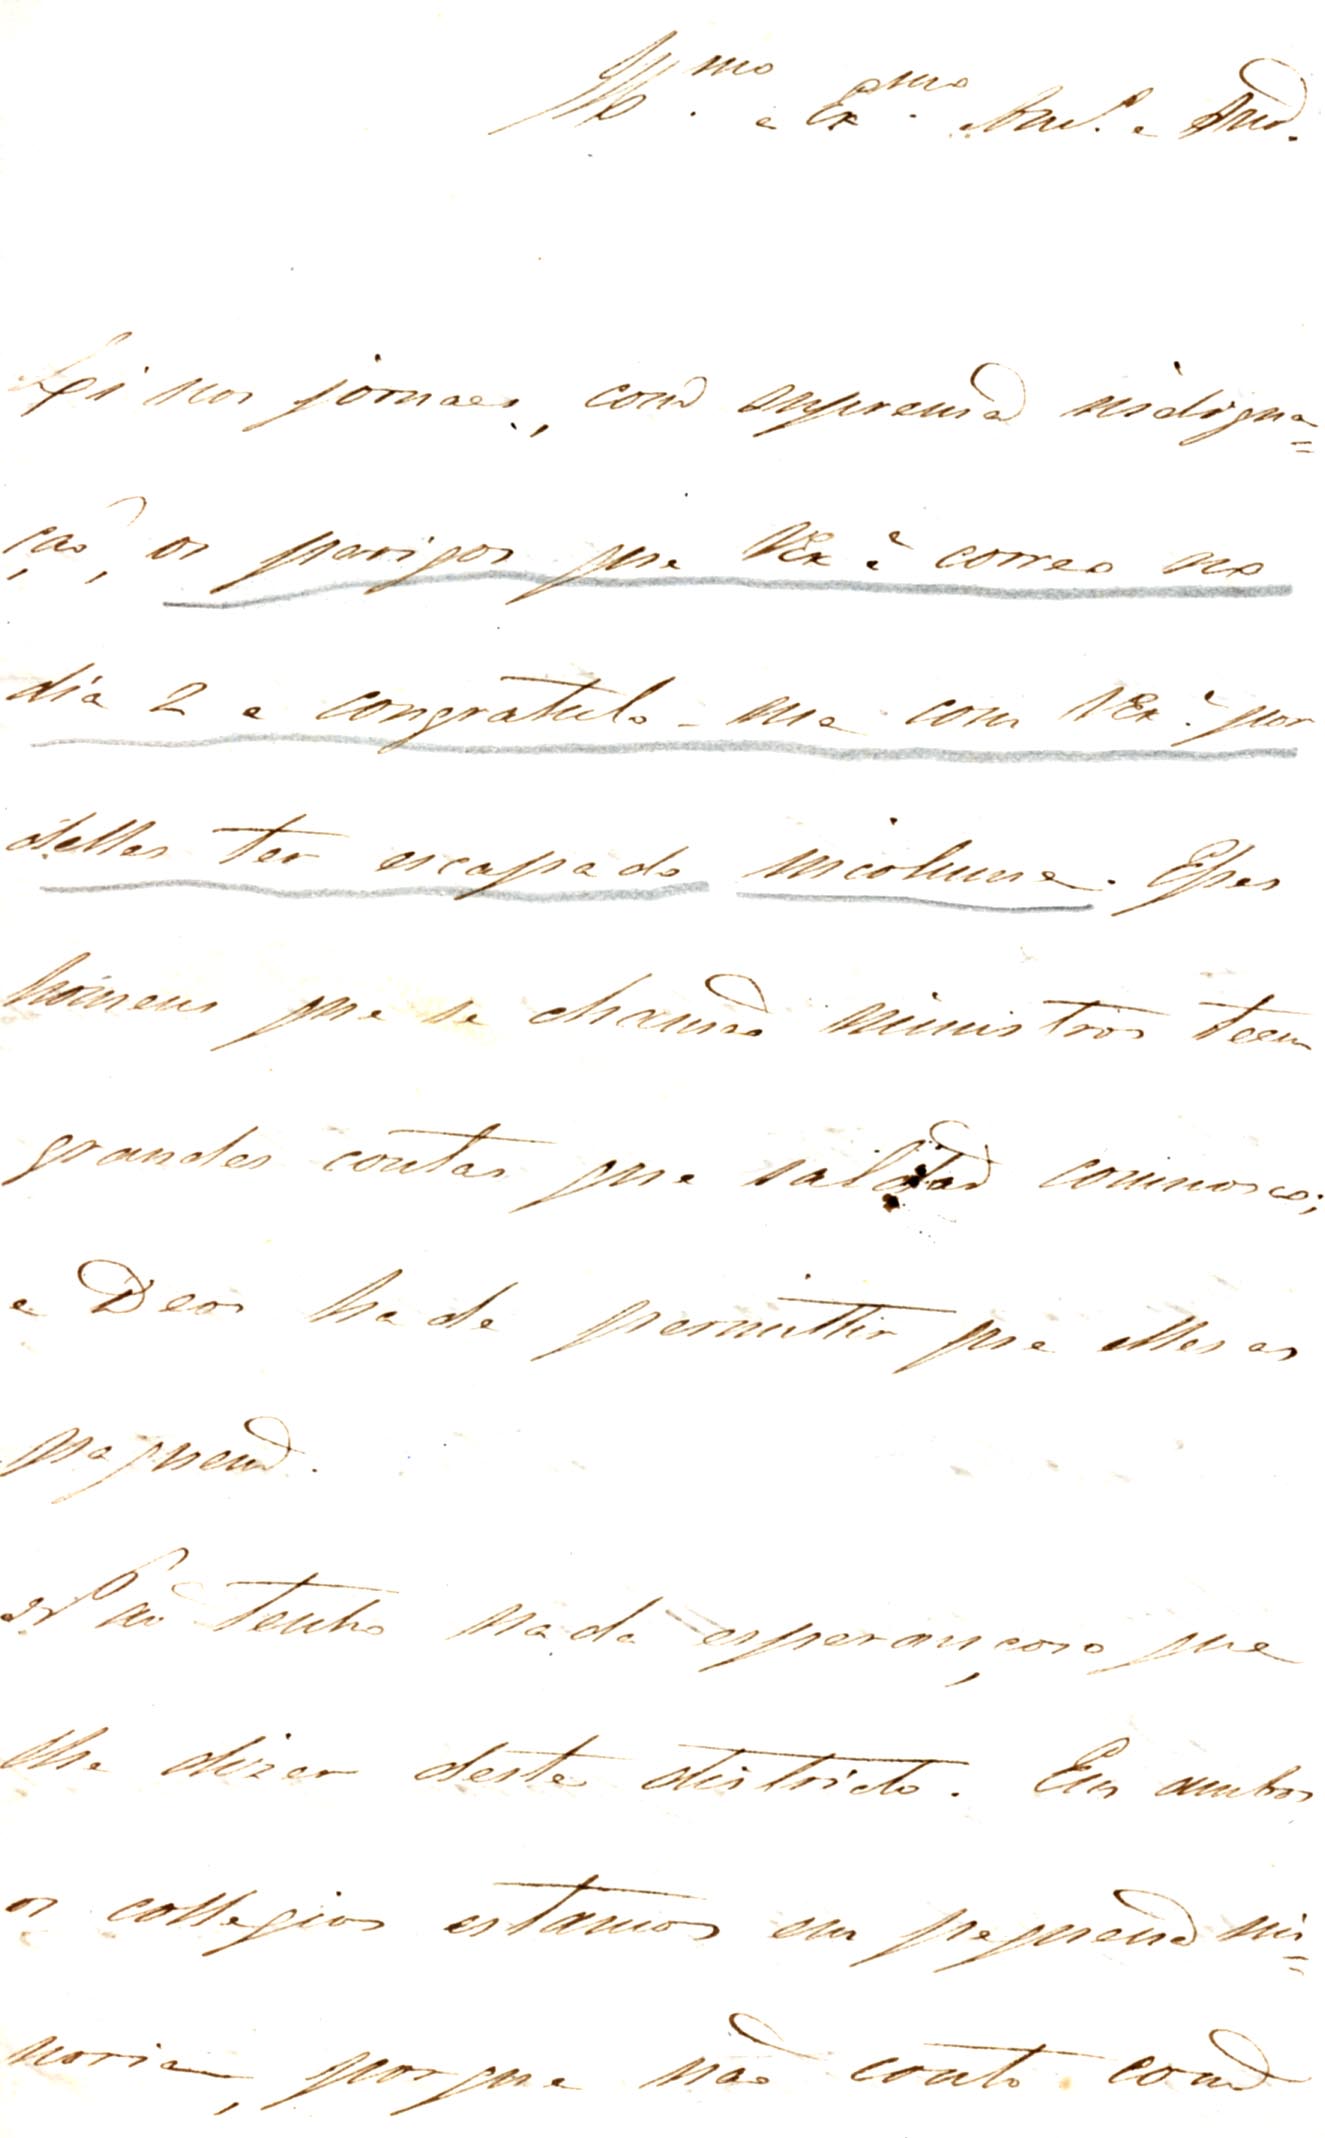 Ill.mo e Ex.mo Am.º e Snr.
Li nos jornaes, com suprema indigna=
ção, os perigos que VEx.ª correo no
dia 2 e congratulo-me com VEx.ª por
delles ter escapado incolume. Esses
homens que se chamão ministros teem
grandes contas que saldar comnosco;
e Deos hade permittir que elles as
paguem.
Não tenho nada esperançoso que
lhe dizer deste districto. Em ambos
os collegios estamos em pequena mi=
noria, porque não conto com